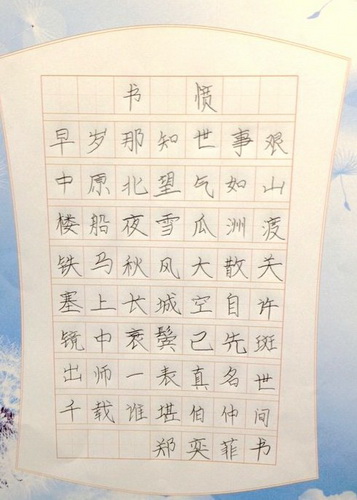 书愤
早岁那知世事艰
中原北望气如山
楼船夜雪瓜洲渡
铁马秋风大散关
塞上长城空自许
镜中衰鬓已先斑
出师一表真名世
千载谁堪伯仲间
郑奕菲书